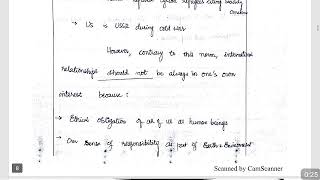 refugees citing
→ US vs USSR during cold war
However, contrary to this norm, international
relationships should not be always in one's own
interest because :
→ Ethical obligation of all of us as human beings
→ Our sense of responsibility as part of Earth & Environment
8
Scanned by CamScanner
0:25